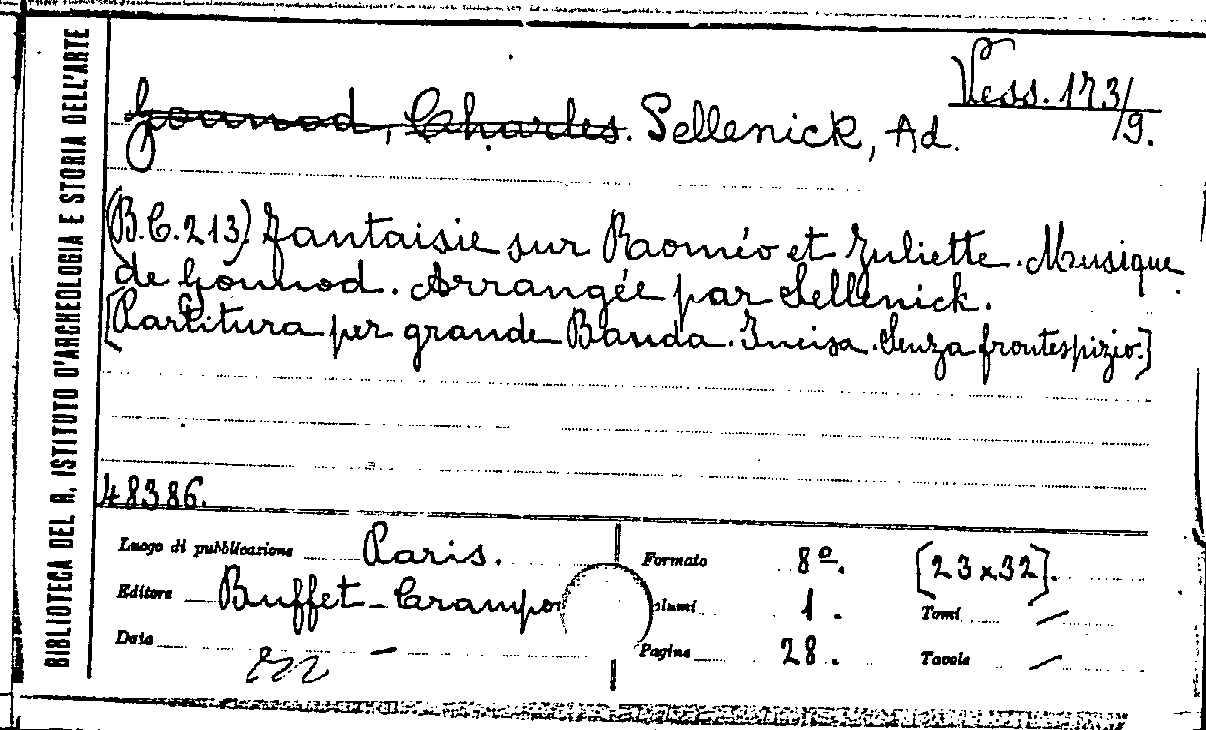 BIBLIOTECA DEL R. ISTITUTO D'ARCHEOLOGIA E STORIA DELL'ARTE
Vess. 173/9.
Gounod, Charles. Sellenick, Ad.
(B.C.213) Fantaisie sur Raoméo et Juliette. Musique
de Gounod. Arrangée par Sellenick.
[Partitura per grande Banda. Incisa. Senza frontespizio.]
48386.
Luogo di pubblicazione Paris. Formato 8º. [23x32].
Editore Buffet-Crampo olumi 1. Tomi /
Data — Pagine 28. Tavole /